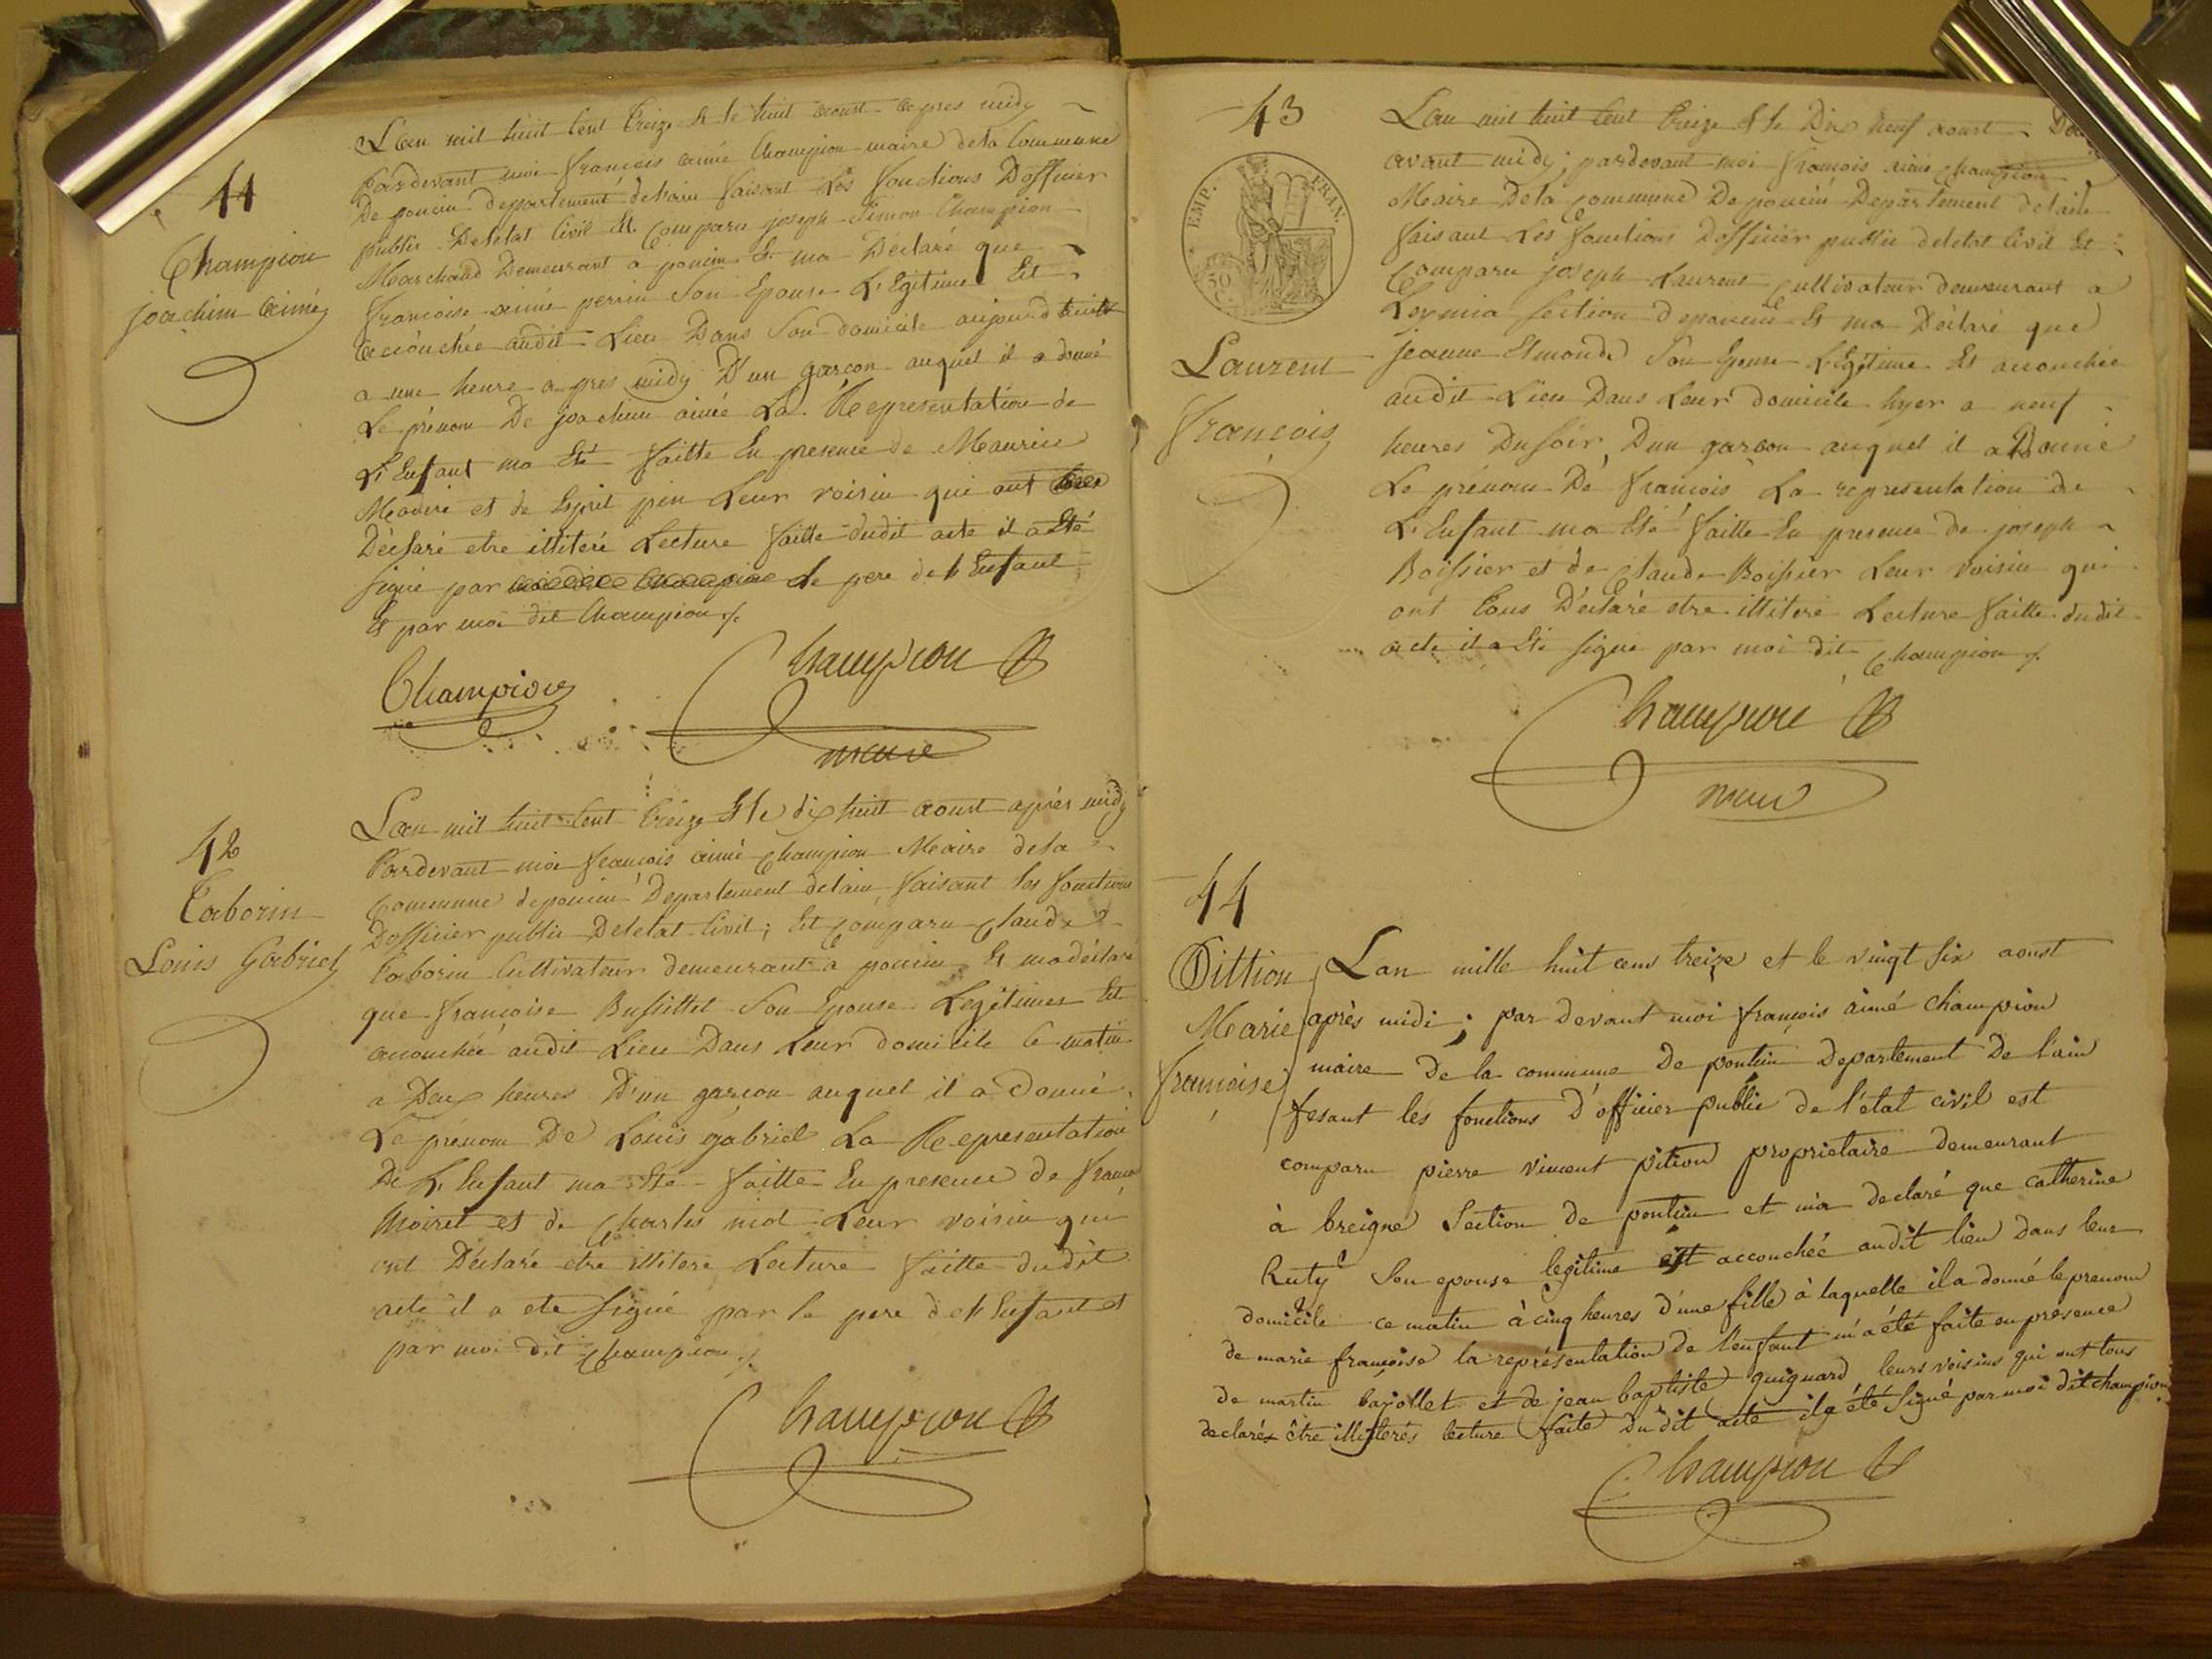 41
Champion
joachim aimé
Lan mil huit Cent treize Et le huit aoust apres midy
Pardevant moi francois aimé Champion maire dela Commune
De poncin departement delain faisant Les fonctions Dofficier
public Deletat Civil Et Comparu joseph Simon Champion
Marchand Demeurant a poncin Et ma Déclaré que
francoise aimé perrin Son Epouse LEgitime Est
accouchée audit Lieu Dans Son domicile aujourd
a une heure apres midy D'un garcon auquel il a donné
Le prénom De joachim aimé La Representation de
L'Enfant ma Eté faitte En presence de Maurice
et de Esprit pin Leur voisin qui ont
Déclaré etre illiteré Lecture faitte dudit acte il a Eté
signé par Le pere de L'Enfant
Et par moi dit Champion
Champion
Champion
maire
42
Taborin
Louis Gabriel
Lan mil huit Cent treize Et le dix huit aoust après midy
Pardevant moi francois aimé Champion Maire dela
Commune deponcin Departement delain faisant Les fonctions
Dofficier public Deletat Civil; Est Comparu Claude
Taborin Cultivateur demeurant a poncin Et ma déclaré
que francoise Bussillet Son Epouse Legitime Est
accouchée audit Lieu Dans Leur domicile Ce matin
a Deux heures D'un garcon auquel il a donné
Le prénom De Louis gabriel La Representation
De L'Enfant ma Eté faitte En presence de
Moiret et de Charles Leur voisin qui
ont Déclaré etre illiteré Lecture faitte dudit
acte il a ete signé par le pere de L'Enfant et
par moi dit Champion
Champion
43
EMP. FRAN.
50
C.
Laurent
francois
Lan mil huit Cent treize Et le Dix neuf aoust
avant midy; pardevant moi francois aimé Champion
Maire Dela Commune De poncin Departement delain
faisant Les fonctions Dofficier public deletat Civil Et
Comparu joseph Laurent Cultivateur demeurant a
Leymia section deponcin Et ma Déclaré que
jeanne Son Epouse LEgitime Et accouchée
audit Lieu Dans Leur domicile hyer a neuf
heures Du soir, Dun garcon auquel il a Donné
Le prénom De francois La representation de
L'Enfant ma Eté faitte En presence de joseph
Boissier et de Claude Boissier Leur voisin qui
ont tous Déclaré etre illiteré Lecture faitte dudit
acte il a Eté signé par moi dit Champion
Champion
maire
44
Pittion
Marie
francoise
Lan mille huit cens treize et le vingt six aoust
après midi; par devant moi françois aimé champion
maire de la commune de pontin departement de l'ain
fesant les fonctions d'officier public de l'état civil est
comparu pierre vincent pition proprietaire demeurant
à breigne Section de pontin et m'a declaré que catherine
Ruty Son epouse legitime est accouchée audit lieu dans leur
domicile ce matin à cinq heures d'une fille à laquelle il a donné le prenom
de marie françoise la représentation de l'enfant m'a été faite en présence
de martin bajollet et de jean baptiste guignard leurs voisins qui ont tous
declarés être illiterés lecture faite du dit acte il a été signé par moi dit champion
Champion